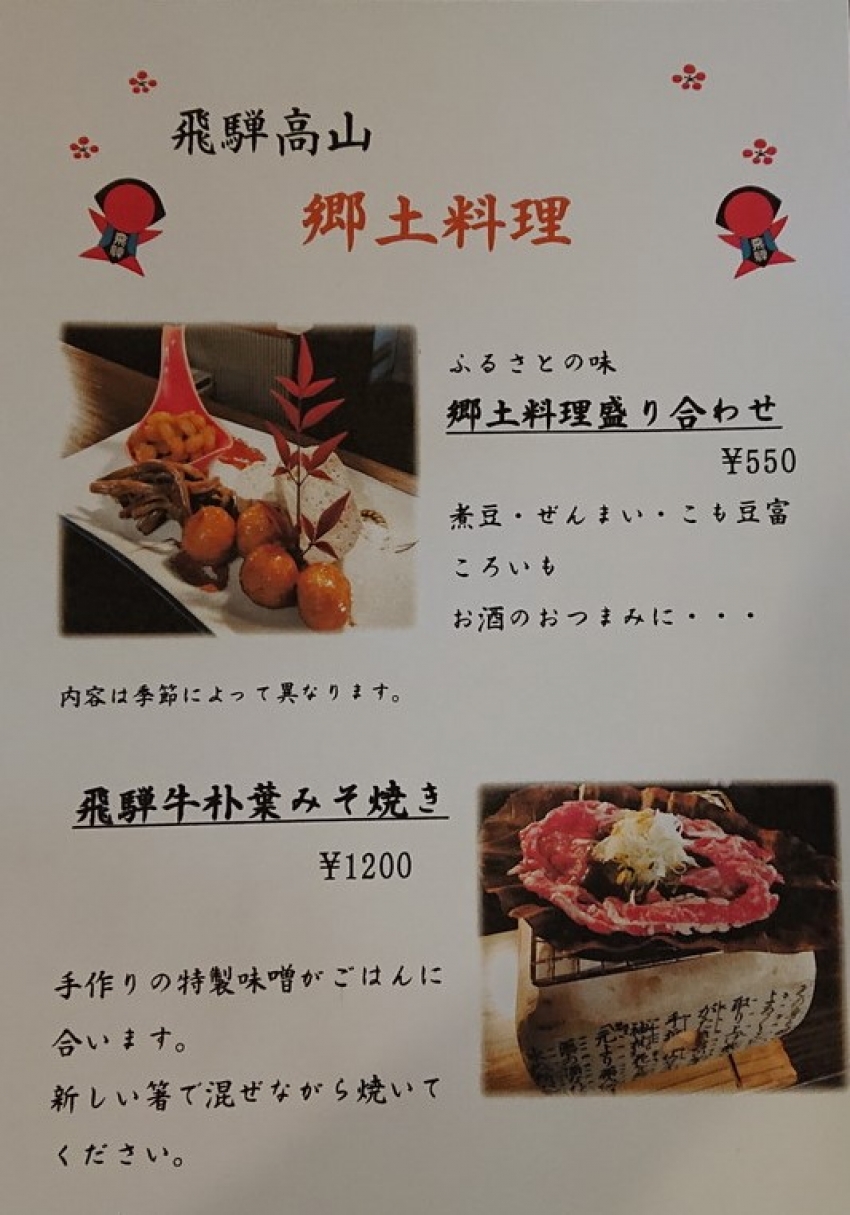 飛騨高山
郷土料理
飛騨
飛騨
ふるさとの味
郷土料理盛り合わせ
¥550
煮豆・ぜんまい・こも豆富
ころいも
お酒のおつまみに・・・
内容は季節によって異なります。
飛騨牛朴葉みそ焼き
¥1200
手作りの特製味噌がごはんに
合います。
新しい箸で混ぜながら焼いて
ください。